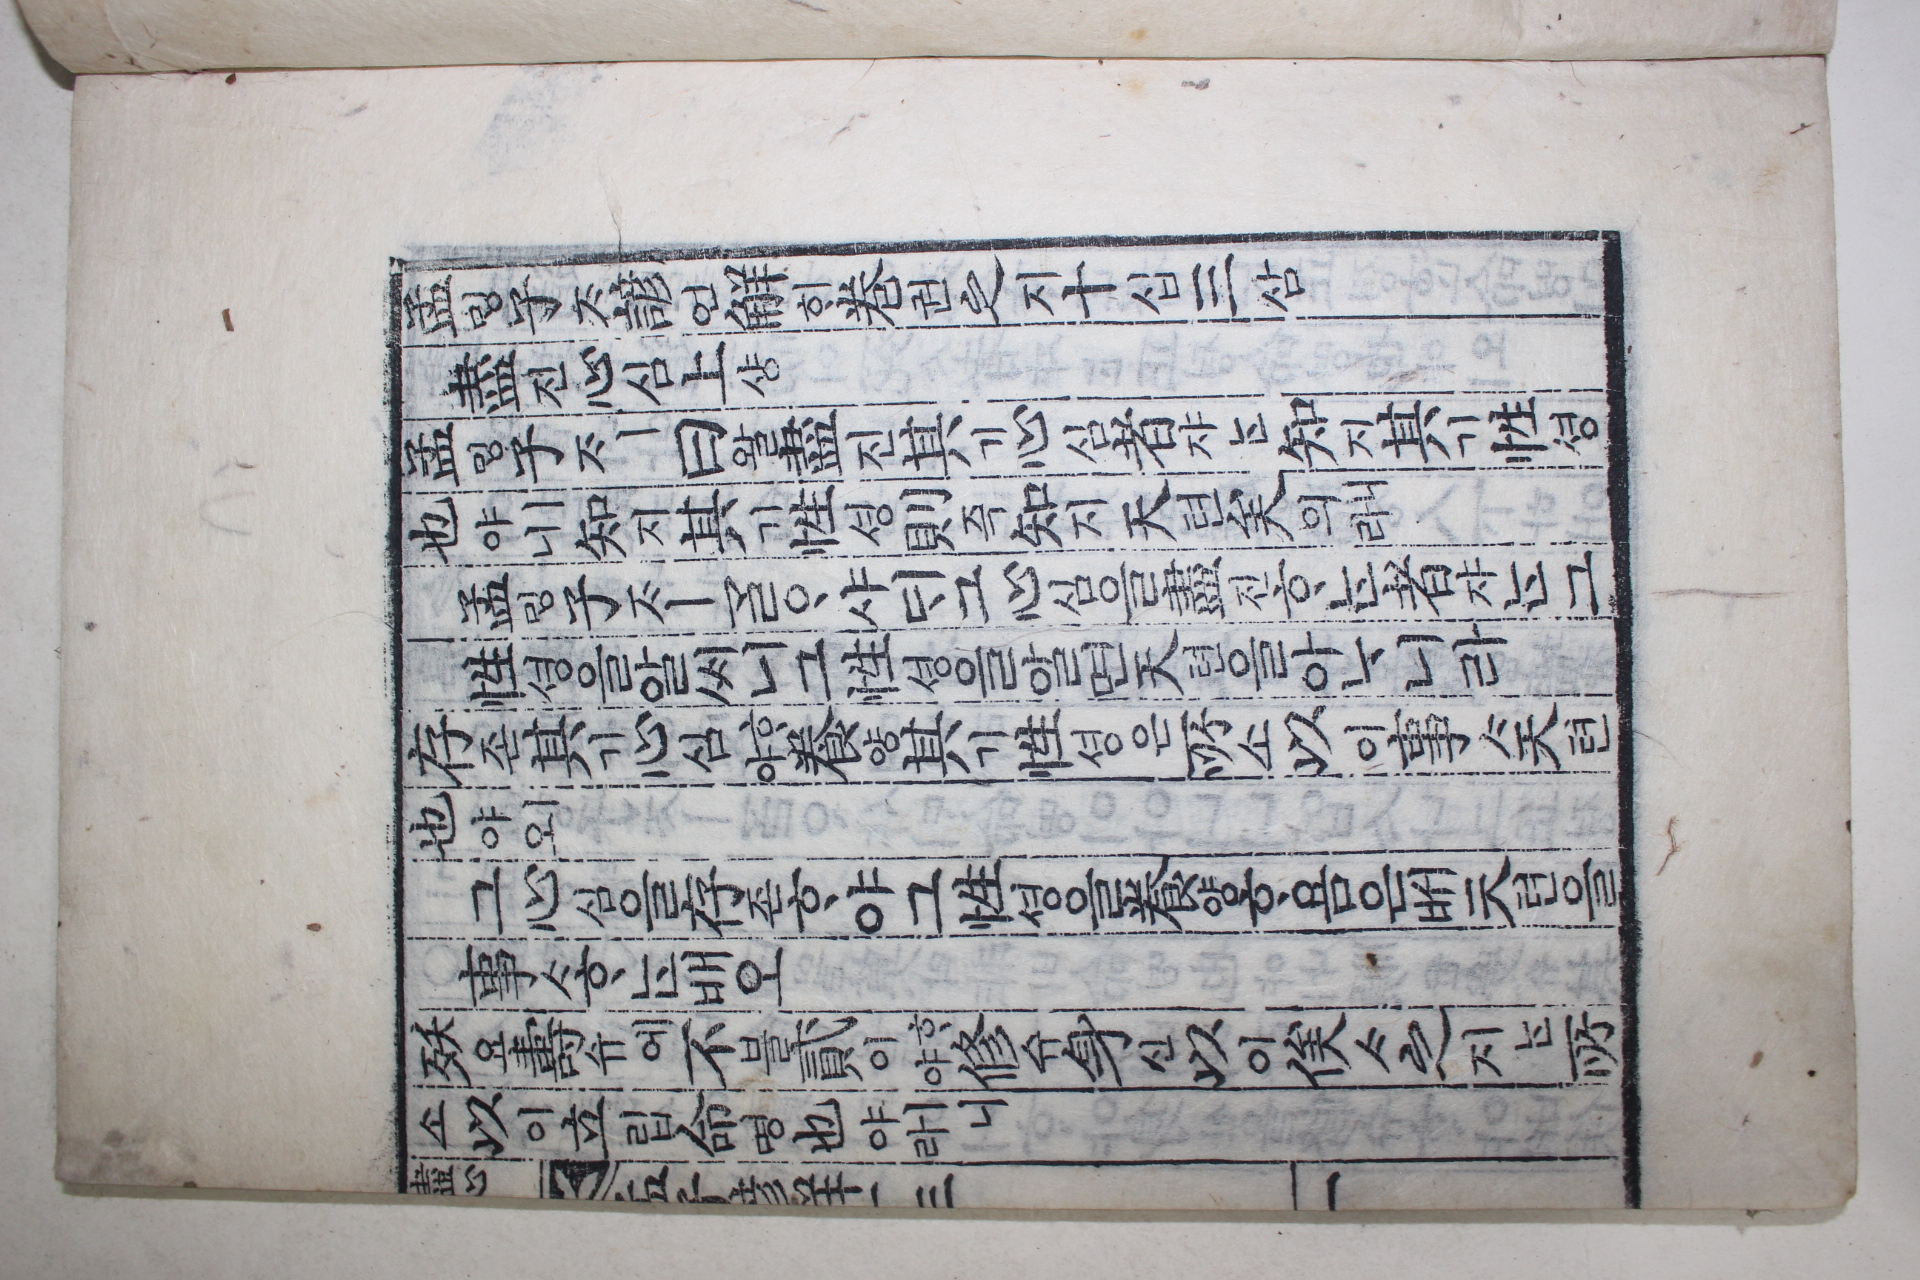 孟밍子ᄌᆞ諺언解ᄒᆡ卷권之지十십三삼
盡진心심上샹
孟밍子ᄌᆞㅣ曰왈盡진其기心심者쟈ᄂᆞᆫ知지其기性셩
也야ㅣ니知지其기性셩則즉知지天텬矣의니라
孟밍子ᄌᆞㅣᄀᆞᆯᄋᆞ샤ᄃᆡ그心심을盡진ᄒᆞᄂᆞᆫ者쟈ᄂᆞᆫ그
性셩을알씨니그性셩을알면天텬을아ᄂᆞ니라
存존其기心심ᄒᆞ야養양其기性셩은所소以이事ᄉᆞ天텬
也야ㅣ오
그心심을存존ᄒᆞ야그性셩을養양ᄒᆞ욤은ᄡᅥ天텬을
事ᄉᆞᄒᆞᄂᆞᆫ배오
殀요壽슈에不블貳이ᄒᆞ야修슈身신以이俟ᄉᆞ之지ᄂᆞᆫ所
소以이立립命명也야ㅣ니라
盡心 孟子諺解十三 一